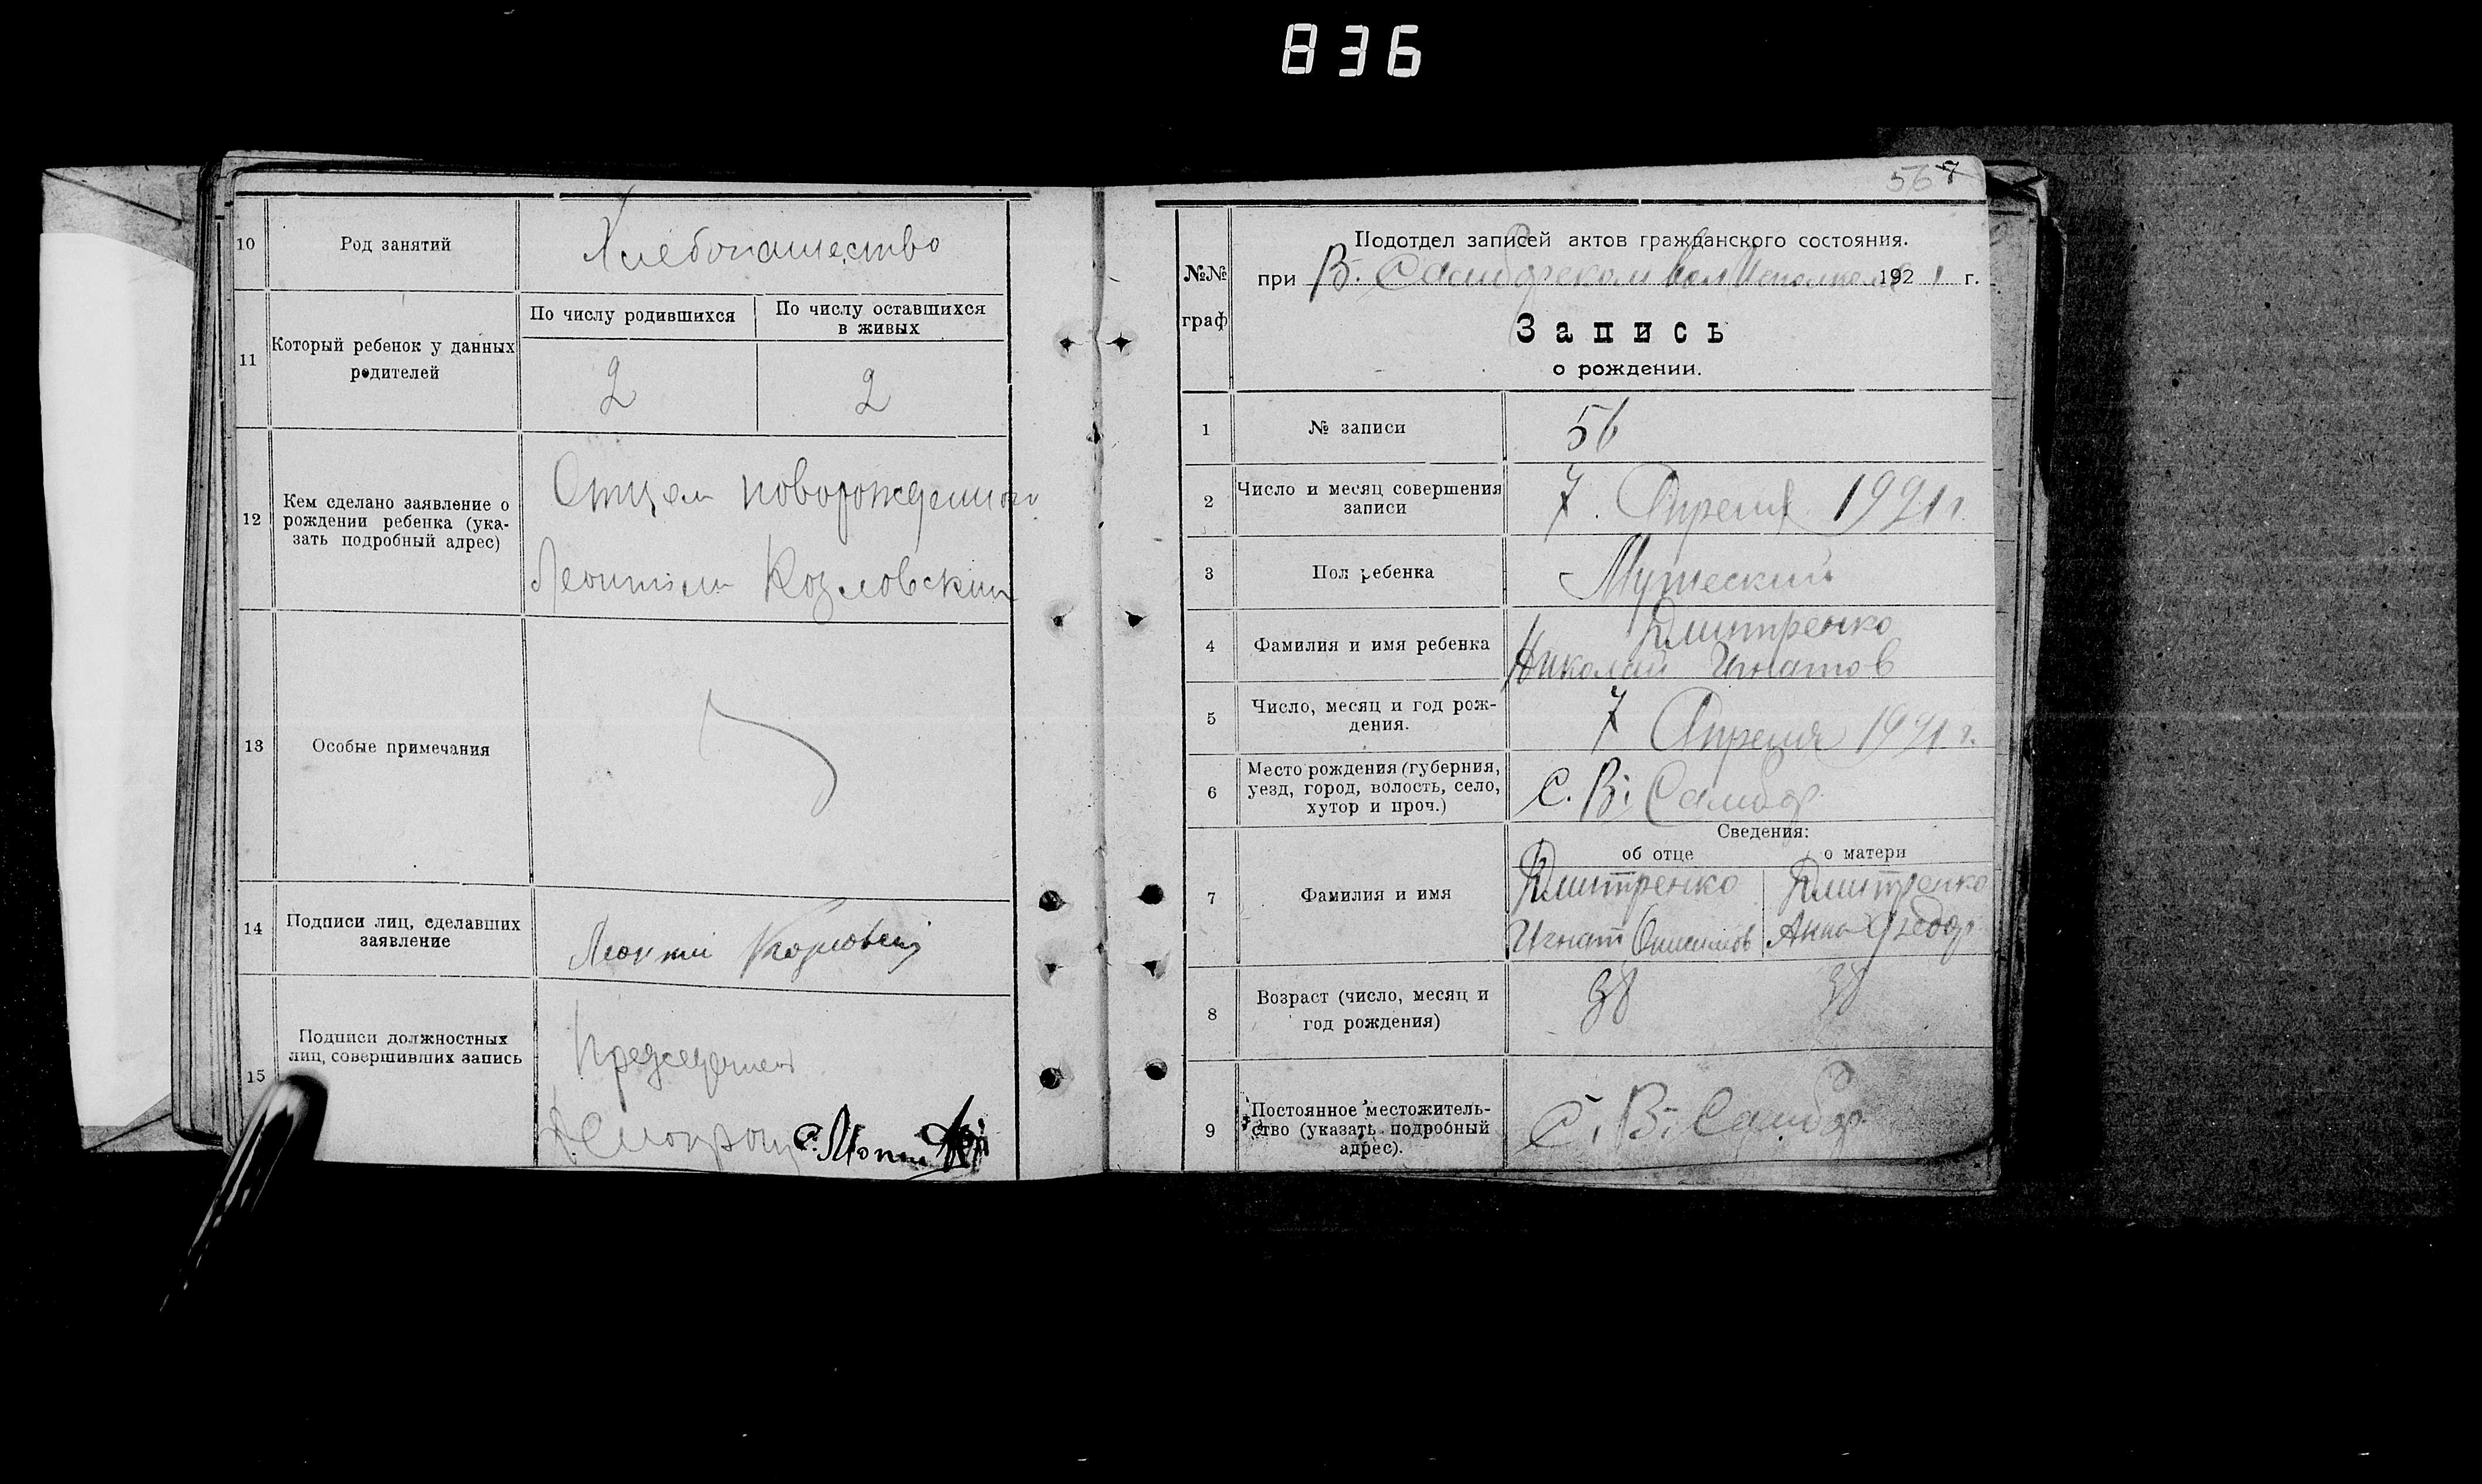 836
10 Род занятий Хлебопашество
11 Который ребенок у данных родителей
По числу родившихся
По числу оставшихся
в живых
2 2
12 Кем сделано заявление о
рождении ребенка (ука-
зать подробный адрес)
Отцем новорожденного
Леонтием Козловским
13 Особые примечания
14 Подписи лиц, сделавших
заявление
Леонтий Козловский
15 Подписи должностных
лиц, совершивших запись
Председатель
567
№№
граф
Подотдел записей актов гражданского состояния.
при В. Самборском Вол Исполкоме 1921 г.
Запись
о рождении.
1 № записи 56
2 Число и месяц совершения
записи
7. Апреля 1921 г.
3 Пол ребенка Мужеский
4 Фамилия и имя ребенка
Дмитренко
Николай Игнатов
5 Число, месяц и год рож-
дения.
7 Апреля 1921 г.
6 Место рождения (губерния,
уезд, город, волость, село,
хутор и проч.)
С. В. Самбор
Сведения:
об отце о матери
7 Фамилия и имя
Дмитренко Дмитренко
Игнат Онисимов Анна Федор
8 Возраст (число, месяц и
год рождения)
38 38
9 Постоянное местожитель-
ство (указать подробный
адрес).
С. В. Самбор